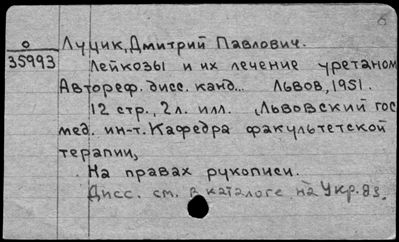 б
о Луцик, Дмитрий Павлович.
35993 Лейкозы и их лечение уретаном
Автореф. дисс. канд... Львов, 1951.
12 стр., 2 л. илл. (Львовский гос
мед. ин-т. Кафедра факультетской
терапии)
На правах рукописи.
Дисс. см. в каталоге на Укр. яз.